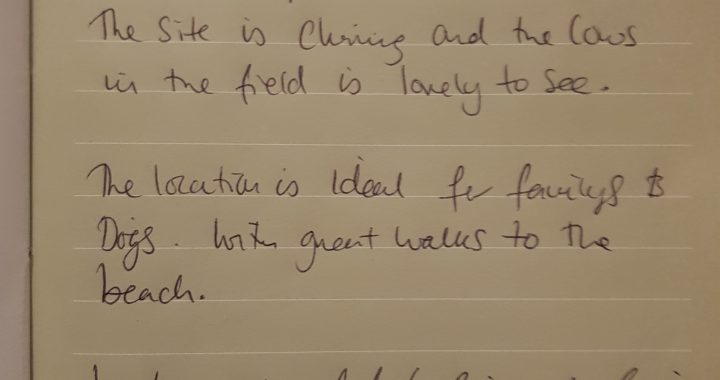 The Site is and the Cows
in the field is lovely to see.
The location is Ideal for familys &
Dogs. With great walks to the
beach.